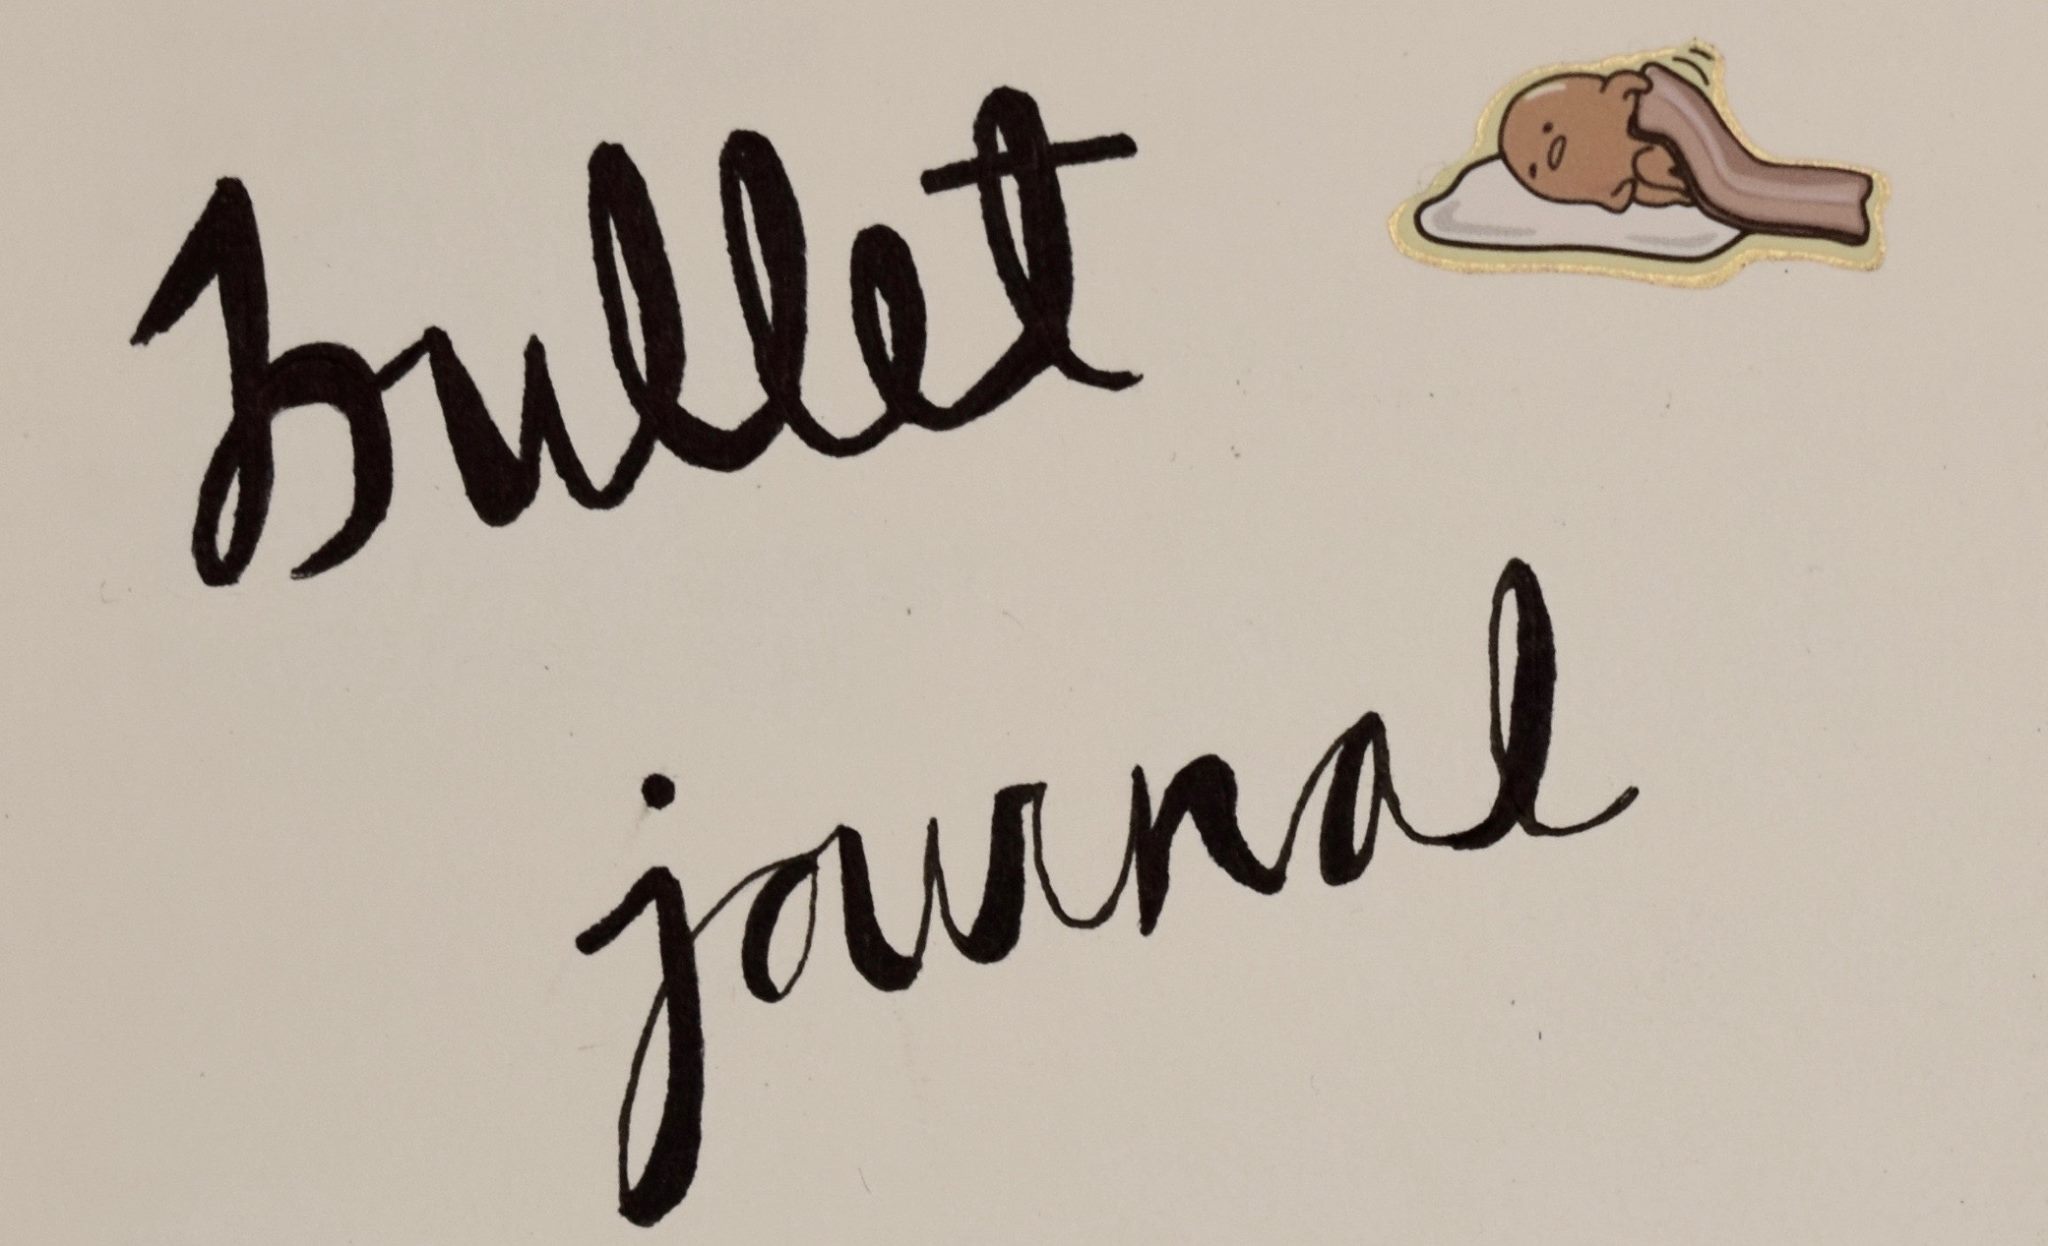 bullet
journal